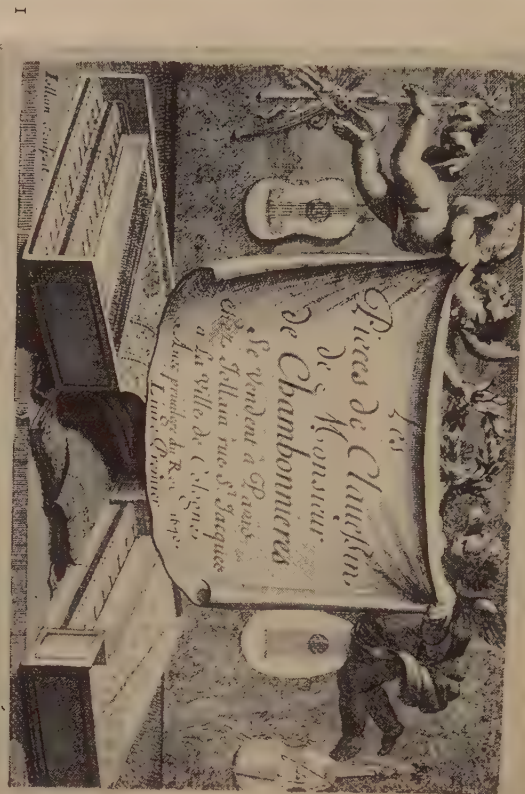 Les
Pieces de Clauessin
de Monsieur
de Chambonnieres
Se Vendent à Paris
chez Jollain rue St Jacques
a la Ville de Cologne
Auec priuilege du Roy 1670
Liure Premier
Iollain excudit
I